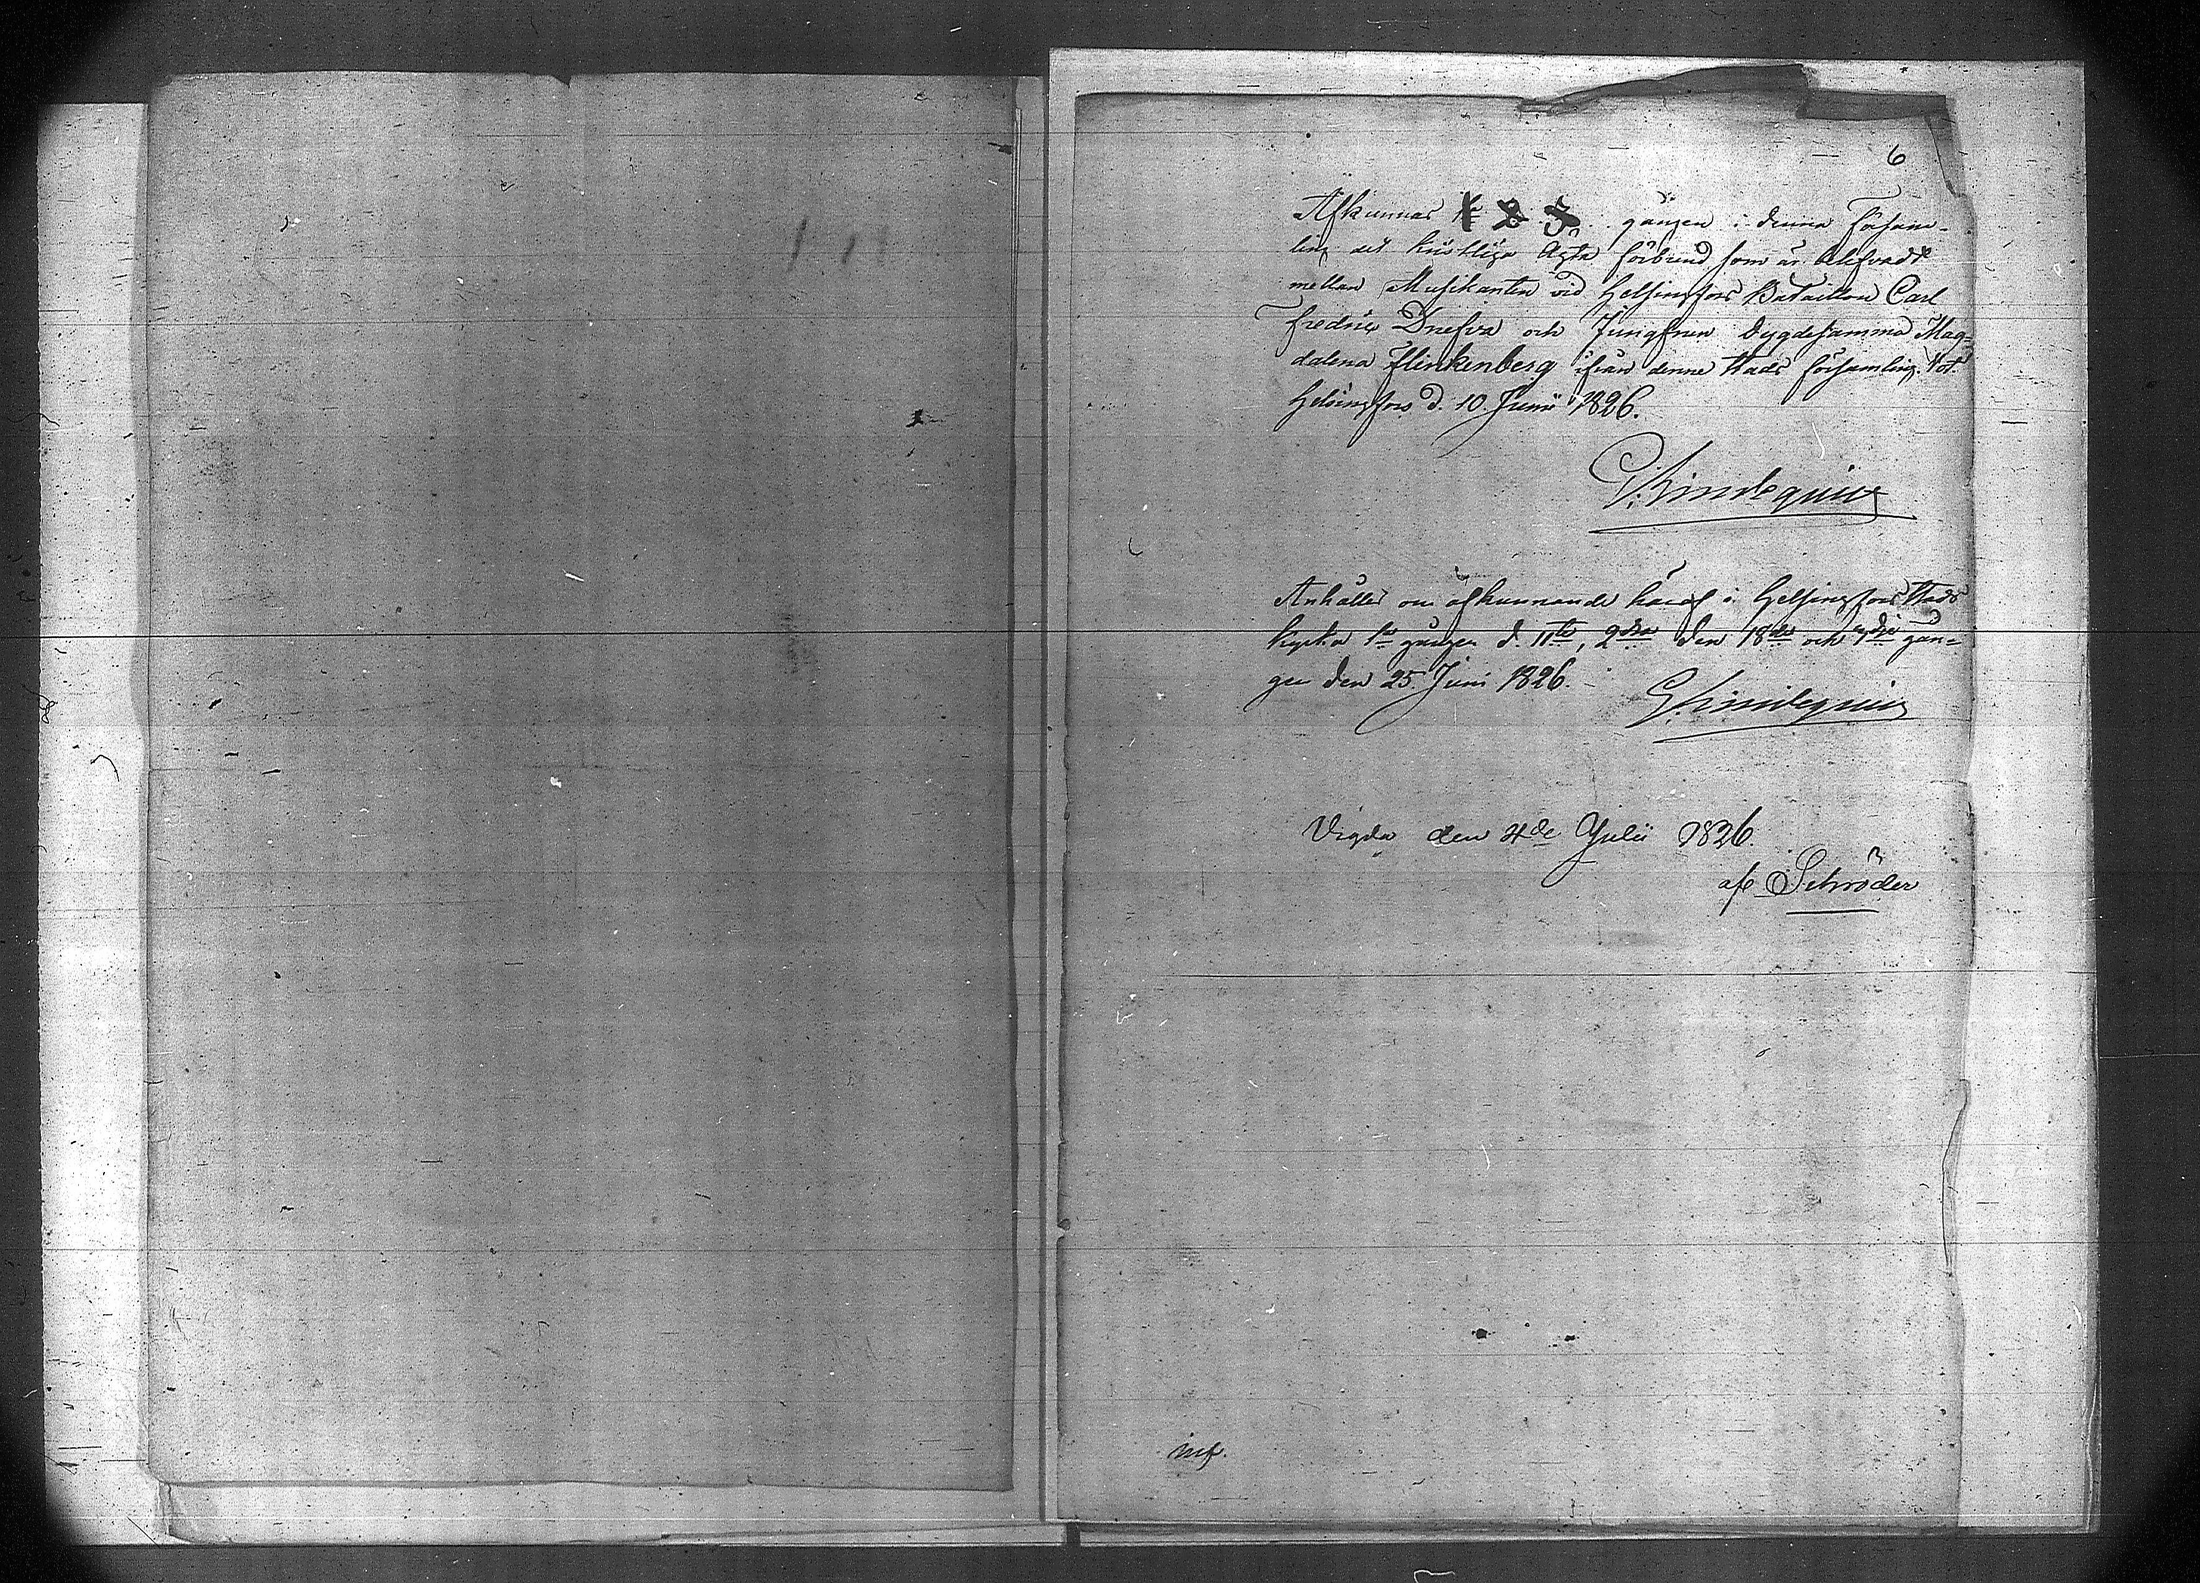 6
Afkunnas 1 2 3 gången i denna församling
det kristliga Ägta förbund som är
mellan Musikanten vid Helsingfors Bataillon Carl
Fredric Drefva och Jungfrun Dygdesamma Mag=
dalena Flinkenberg ifrån denne stads församling.
Helsingfors d. 10 Junii 1826.
Anhålles om afkunnande häraf i Helsingfors Stads
kyrka 1sta gången d. 11te, 2dra den 18de och 3dje gån=
gen den 25 Juni 1826.
Vigda den 4de Julii 1826.
af Schröder